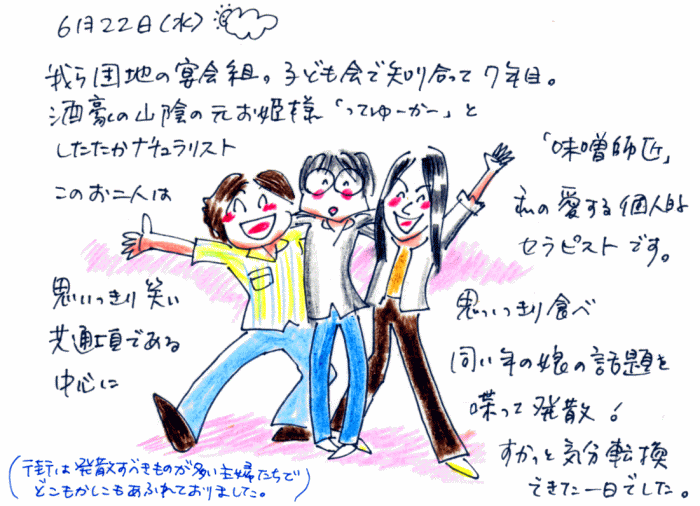 6月22日(水)
我ら団地の宴会組。子ども会で知り合って7年目。
酒豪の山陰の元お姫様「ってゆーかー」と
したたかナチュラリスト「味噌師匠」
このお二人は 私の愛する個人的
セラピストです。
思いっきり笑い 思いっきり食べ
共通項である 同い年の娘の話題を
中心に 喋って発散!
すかっと気分転換
できた一日でした。
(街は発散すべきものが多い主婦たちで
どこもかしこもあふれておりました。)